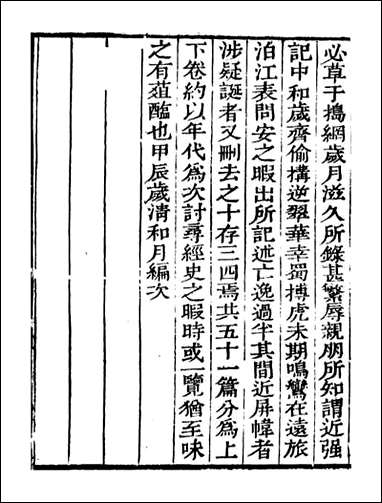 必草于搗網歲月滋久所錄甚繁辱親朋所知謂近强
記中和歲齊偷搆逆翠華幸蜀搏虎未期鳴鸞在遠旅
泊江表問安之暇出所記述亡逸過半其間近屏幃者
涉疑誕者又刪去之十存三四焉共五十一篇分爲上
下卷約以年代爲次討尋經史之暇時或一覽猶至味
之有葅醢也甲辰歲清和月編次